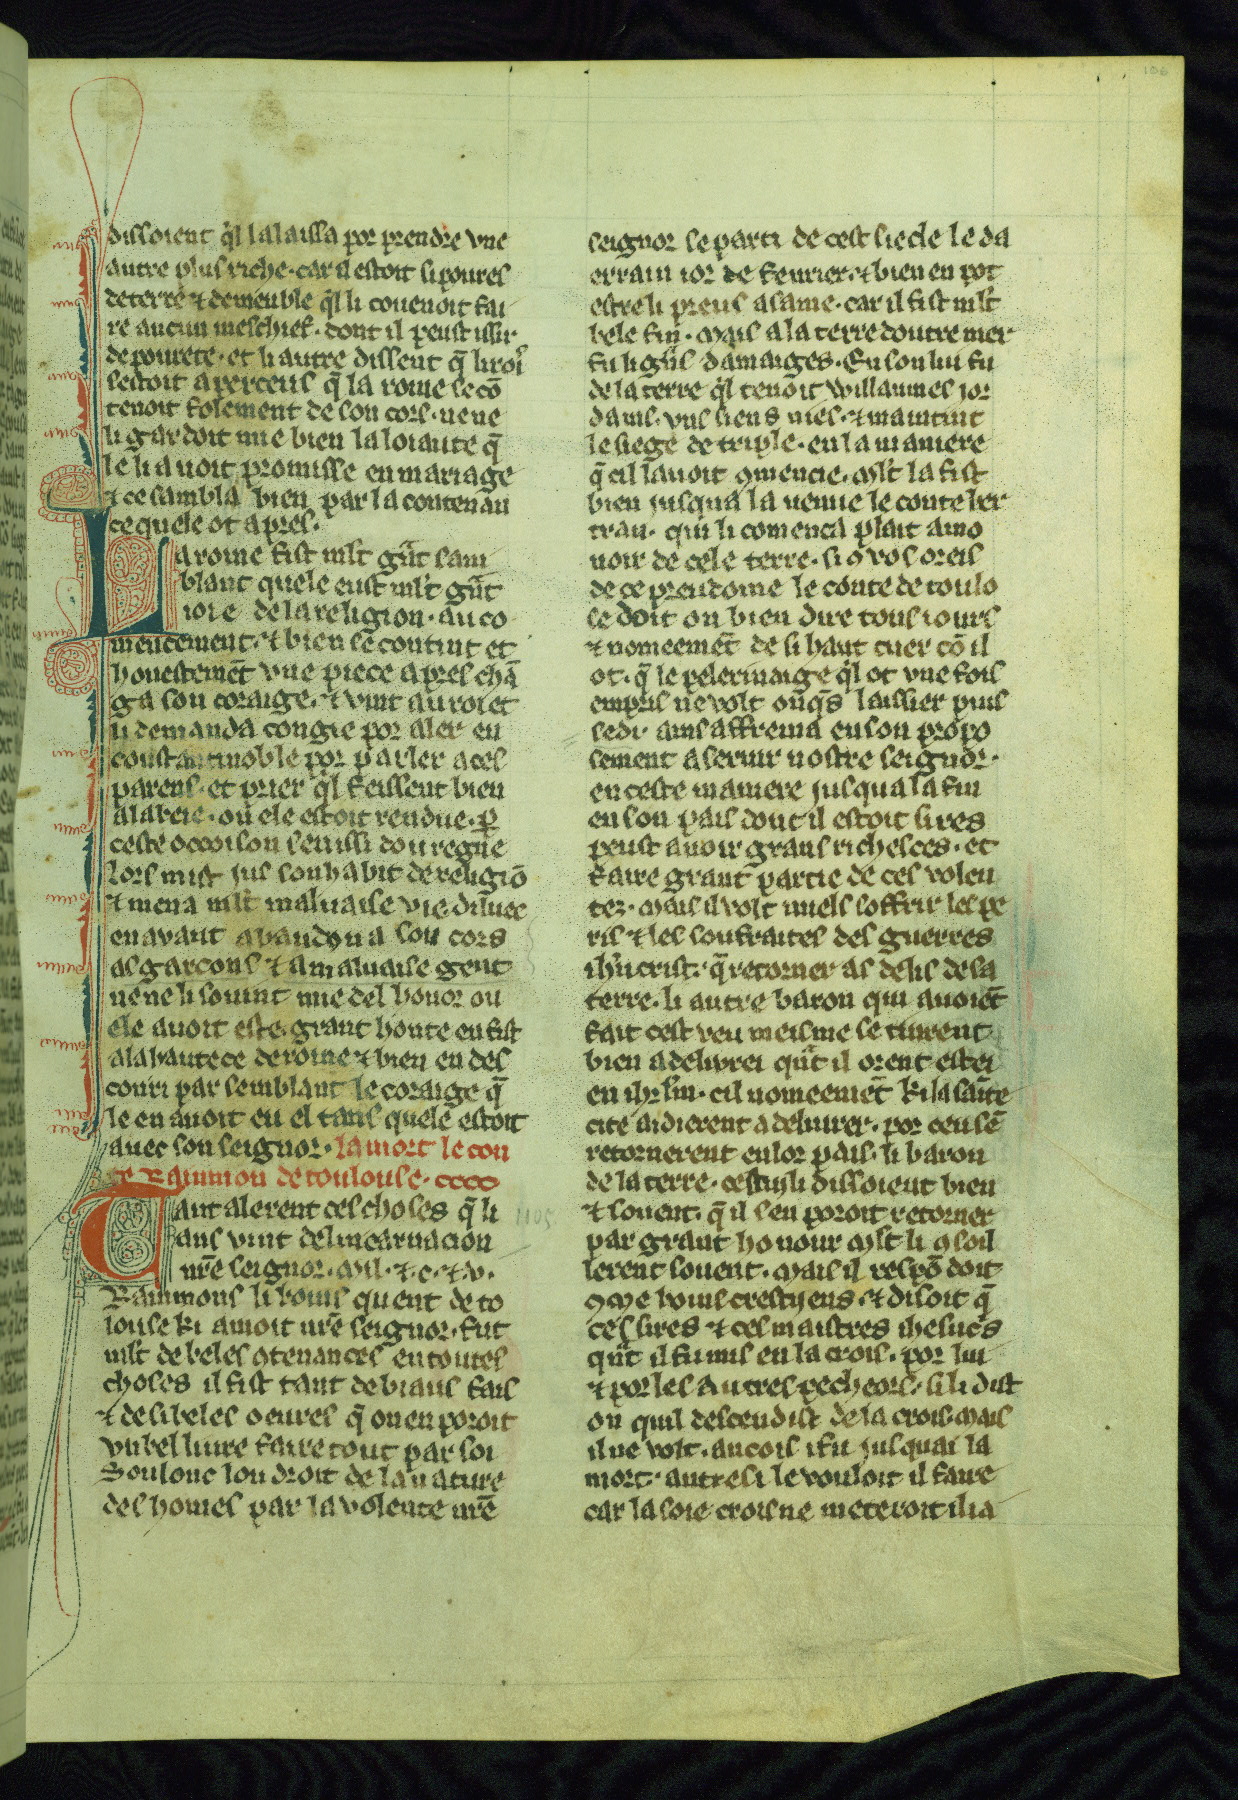 106
disloient ql la laissa por prendre vne
autre plus riche · car il estoit si poures
de terre ⁊ de meuble ql li couenoit fai
re aucun meschief · dont il peust issir
de pourete · et li autre dissent q̄ li rois
sestoit aperceus q̄ la roine se cō
tenoit folement de son cors · ne ne
li gardoit mie bien la loiaute q̄
le li auoit promisse en mariage
⁊ ce sambla bien par la contenan
ce quele ot apres ·
La roine fist mlt grāt sam
blant quele eust mlt grāt
ioie de la religion · au co
mencement · ⁊ bien se contint et
honestemēt vne piece apres chā
ga son coraige · ⁊ vint au roi et
li demanda congie por aler en
constantinoble por parler a ces
parens · et prier ql feissent bien
a labeie · ou ele estoit rendue · ꝑ
ceste occoison senissi dou regne
Lors mist jus son habit de religiō
⁊ mena mlt maluaise vie diluec
en avant abandona son cors
as garcons ⁊ a maluaise gent
ne ne li souint mie del honor ou
ele auoit este · grant honte en fist
a la hautece de roine ⁊ bien en des
couri par semblant le coraige q̄
le en auoit eu el tans quele estoit
auec son seignor · la mort le con
te Raimmon de toulouse · cccc
Tant alerent ces choses q̄ li
ans vint de lincarnacion 1105
nr̄e seignor · Mil · ⁊ · c · ⁊ · v ·
Raimmons li bonis quent de to
louse ki amoit nr̄e seignor · fut
mlt de beles ꝯtenances en toutes
choses il fist tant de biaus fais
⁊ de si beles oeures q̄ on en poroit
vn bel liure faire tout par soi
Soulonc lou droit de la nature
des homes par la volente nr̄e
seignor se parti de cest siecle le da
errain ior de feurier · ⁊ bien en pot
estre li preus a same · car il fist mlt
bele fin · Mais a la terre doutre mer
fu li grās damaiges · En son liu fu
de la terre ql tenoit Willaumes jor
dains · vns siens nies · ⁊ maintint
le siege de triple · en la maniere
q̄ cil lauoit ꝯmencie · Mlt la fist
bien jusqua la venue le conte ber
tran · qui li comenca plait a mo
uoir de cele terre · si ꝯ vos oreis
de ce preudome le conte de toulo
se doit on bien dire tous iours
⁊ nomeemēt de si haut cuer cō il
ot · q̄ le pelerinaige ql ot vne fois
empris ne volt onq̄s laissier puis
sedi · ains affrema en son propo
sement a seruir nostre seignor ·
en ceste maniere jusqua la fin
en son pais dont il estoit sires
peust auoir grans richesces · et
faire grant partie de ces volen
tez · Mais il volt miels soffrir les pe
ris ⁊ les soufraites des guerres
ihūcrist · q̄ retorner as delis de sa
terre · li autre baron qui auoiēt
fait cest veu meisme se tinrent
bien a delivrei quāt il orent estei
en ihr̄lm · cil nomeemēt ki la sainte
cite aidierent a deliurer · por ceu sē
retornerent en lor pais · li baron
de la terre · cestui li disloient bien
⁊ souent · q̄ il sen poroit retorner
par grant honour mlt li ꝯsoil
lerent souent · Mais il respōdoit
ꝯme boins crestijens · ⁊ disoit q̄
ces sires ⁊ ces maistres ihesucs
quāt il fu mis en la crois · por lui
⁊ por les autres pecheors · si li dist
on quil descendist de la crois · Mais
il ne volt · ancois i fu jusquai la
mort · autresi le vouloit il faire
car la soie crois ne meteroit il ia